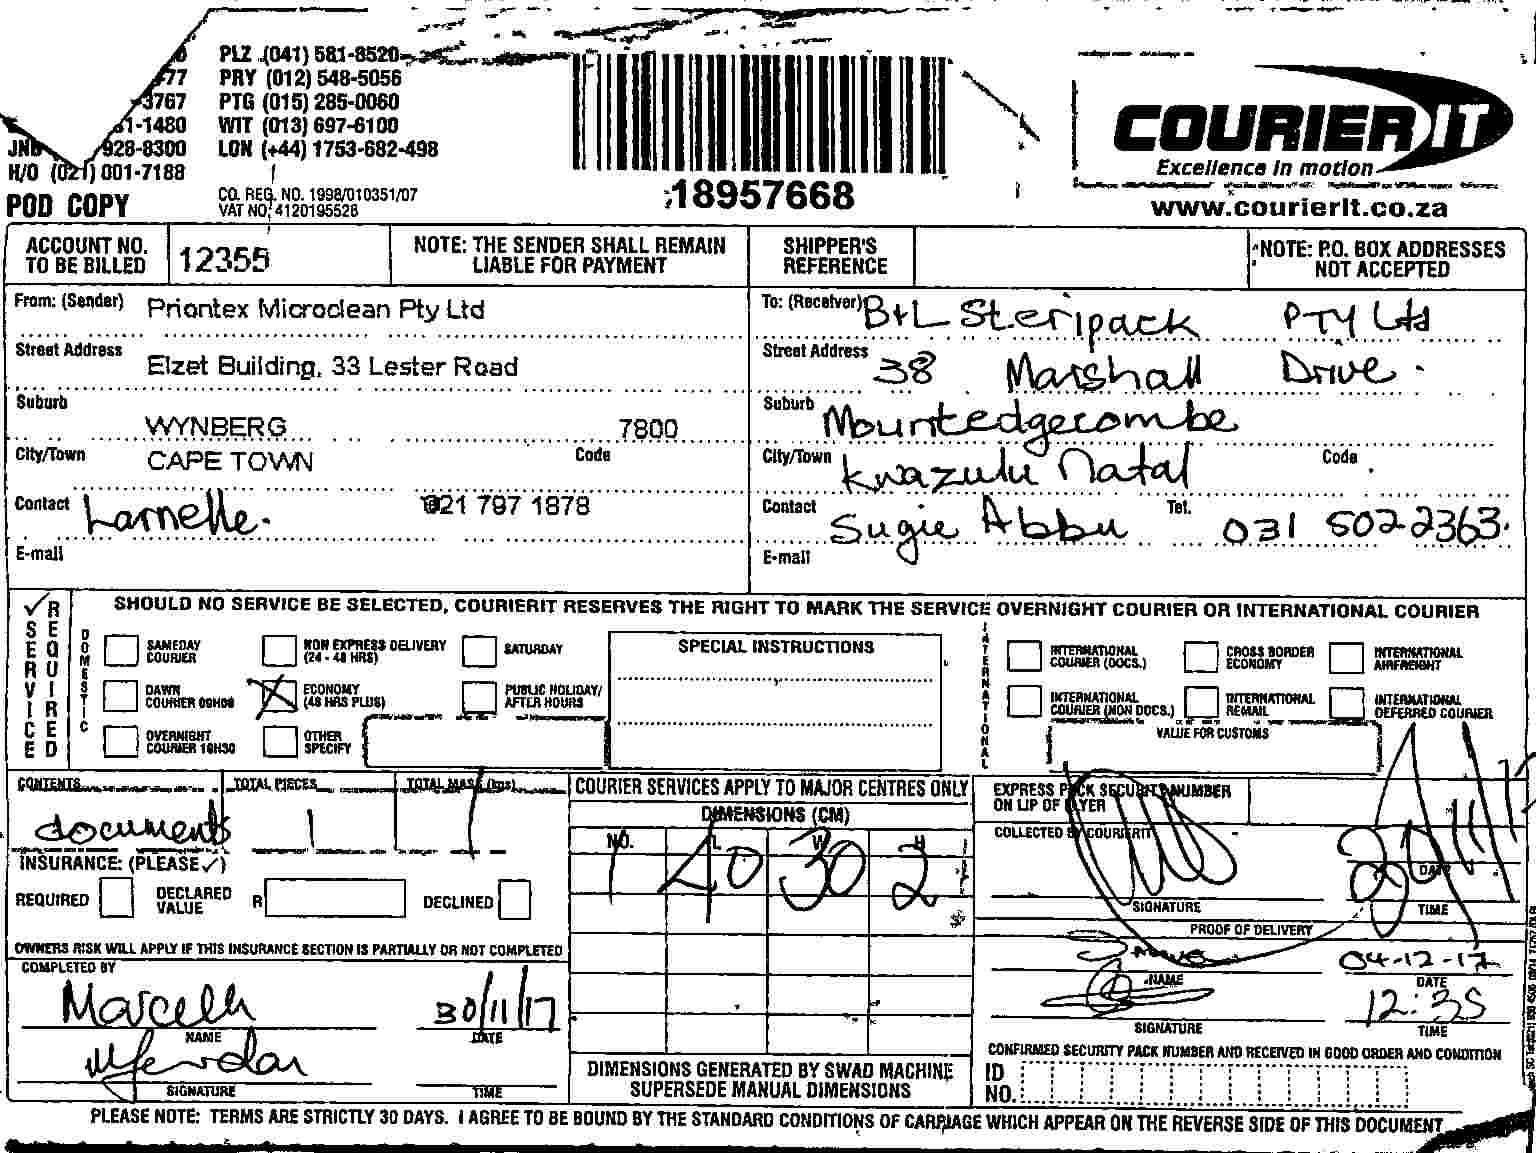 PLZ (041) 581-8520
77 PRY (012) 548-5056
3767 PTG (015) 285-0060
1-1480 WIT (013) 697-6100
JNB 928-8300 LON (+44) 1753-682-498
H/O (021) 001-7188
POD COPY
CO. REG. NO. 1998/010351/07
VAT NO. 4120195526
18957668
COURIER IT
Excellence in motion
www.courierit.co.za
ACCOUNT NO. TO BE BILLED 12355
NOTE: THE SENDER SHALL REMAIN LIABLE FOR PAYMENT
SHIPPER'S REFERENCE
NOTE: P.O. BOX ADDRESSES NOT ACCEPTED
From: (Sender) Priontex Microclean Pty Ltd
Street Address Elzet Building, 33 Lester Road
Suburb WYNBERG 7800
City/Town CAPE TOWN Code
Contact Larnelle. 021 797 1878
E-mail
To: (Receiver) B+L Steripack PTY Ltd
Street Address 38 Marshall Drive.
Suburb Mountedgecombe
City/Town Kwazulu Natal Code
Contact Sugie Abbu Tel. 031 5022363.
E-mail
SERVICE REQUIRED
SHOULD NO SERVICE BE SELECTED, COURIERIT RESERVES THE RIGHT TO MARK THE SERVICE OVERNIGHT COURIER OR INTERNATIONAL COURIER
DOMESTIC
SAMEDAY COURIER
NON EXPRESS DELIVERY (24 - 48 HRS)
SATURDAY
DAWN COURIER 09H00
ECONOMY (48 HRS PLUS)
PUBLIC HOLIDAY/ AFTER HOURS
OVERNIGHT COURIER 10H30
OTHER SPECIFY
SPECIAL INSTRUCTIONS
INTERNATIONAL
INTERNATIONAL COURIER (DOCS.)
CROSS BORDER ECONOMY
INTERNATIONAL AIRFREIGHT
INTERNATIONAL COURIER (NON DOCS.)
INTERNATIONAL REMAIL
INTERNATIONAL DEFERRED COURIER
VALUE FOR CUSTOMS
CONTENTS TOTAL PIECES TOTAL MASS (kgs)
documents 1 1
INSURANCE: (PLEASE ✓)
REQUIRED DECLARED VALUE R DECLINED
OWNERS RISK WILL APPLY IF THIS INSURANCE SECTION IS PARTIALLY OR NOT COMPLETED
COMPLETED BY
30/11/17
NAME DATE
SIGNATURE TIME
COURIER SERVICES APPLY TO MAJOR CENTRES ONLY
DIMENSIONS (CM)
NO. L W H
1 40 30 2
DIMENSIONS GENERATED BY SWAD MACHINE SUPERSEDE MANUAL DIMENSIONS
EXPRESS PACK SECURITY NUMBER ON LIP OF FLYER
COLLECTED BY COURIERIT
DATE
SIGNATURE TIME
PROOF OF DELIVERY
04-12-17
NAME DATE
12:35
SIGNATURE TIME
CONFIRMED SECURITY PACK NUMBER AND RECEIVED IN GOOD ORDER AND CONDITION
ID NO.
PLEASE NOTE: TERMS ARE STRICTLY 30 DAYS. I AGREE TO BE BOUND BY THE STANDARD CONDITIONS OF CARRIAGE WHICH APPEAR ON THE REVERSE SIDE OF THIS DOCUMENT